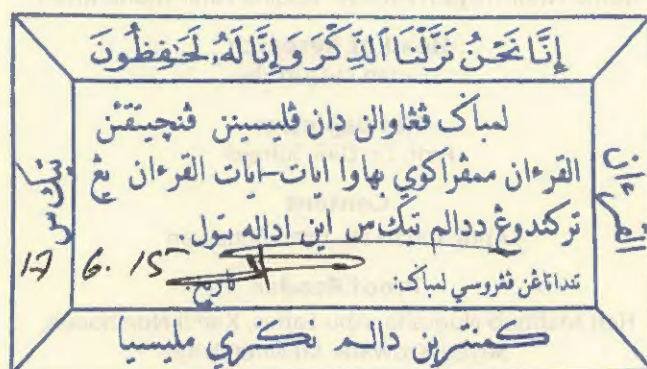 إِنَّا نَحْنُ نَزَّلْنَا ٱلذِّكْرَ وَإِنَّا لَهُۥ لَحَٰفِظُونَ
لمباݢ ڤڠاوالن دان ڤليسينن ڤنچيتقن
القرءان ممڤراكوي بهاوا ايات-ايات القرءان يڠ
تركندوڠ ددالم تيک س اين اداله بتول.
17 6. 15
تنداتاڠن ڤڠروسي لمباݢ: تاريخ:
كمنترين دالم نݢري مليسيا
تيک س